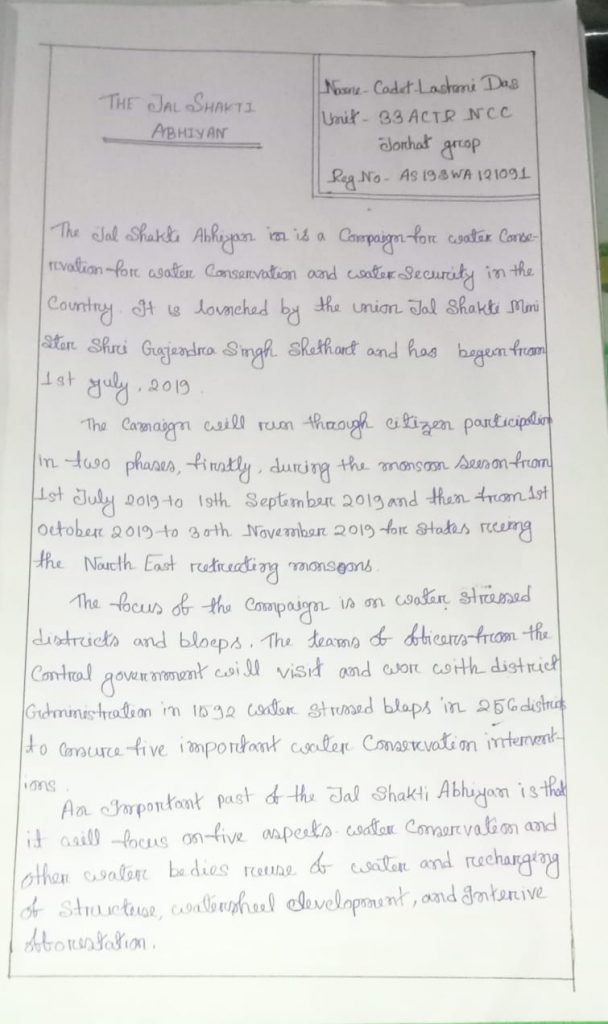 THE JAL SHAKTI
ABHIYAN
Name - Cadet Lashmi Das
Unit - 33 ACTR NCC
Jorhat group
Reg No - AS19SWA121091
The Jal Shakti Abhiyan is a Campaign for water Conse-
rvation for water Conservation and water Security in the
Country. It is lovnched by the union Jal Shakti Mini
ster Shri Gajendra Singh Shethart and has begun from
1st july, 2019.
The Camaign will run through citizen participation
in two phases, firstly, during the monsoon season from
1st July 2019 to 15th September 2019 and then from 1st
October 2019 to 30th November 2019 for states rceing
the North East retreating monsoons.
The focus of the Compaign is on water stressed
districts and bloeps. The teams of officers from the
Contral government will visit and wor with district
Gdministration in 1592 water stressed blaps in 256 districts
to ensure five important water Conservation intervent-
ions.
An Important past of the Jal Shakti Abhiyan is that
it will focus on five aspects. water Conservation and
other water bedies reuse of water and recharging
of Structuse, watersheel development, and Intenive
afforestation.